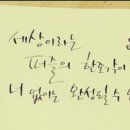 세상이라는
퍼즐의 한조각이
너 없이는 완성될 수